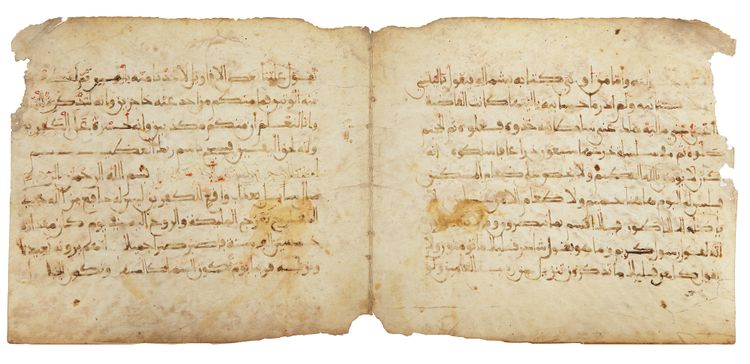 واما من اوتي كتبه بشماله فيقول يليتني
كتابيه ولم ادر ما حسابيه يليتها كانت القاضية
ما اغنى عني ماليه هلك عني سلطانيه خذوه فغلوه ثم الجحيم
صلوه ثم في سلسلة ذرعها سبعون ذراعا فاسلكوه انه
كان لا يومن بالله العظيم ولا يحض على طعام المسكين
فليس له اليوم ههنا حميم ولا طعام الا من
الا الخاطون فلا اقسم بما تبصرون وما لا تبصرون
انه لقول رسول كريم وما هو بقول شاعر قليلا ما تومنون ولا
بقول كاهن قليلا ما تذكرون تنزيل من رب العلمين ولو
تقول علينا بعض الاقاويل لاخذنا منه باليمين ثم لقطعنا
منه الوتين فما منكم من احد عنه حاجزين وانه لتذكرة
وانا لنعلم ان منكم مكذبين وانه لحسرة على الكفرين
وانه لحق اليقين فسبح باسم ربك العظيم
بسم الله الرحمن الرحيم
سال سايل بعذاب واقع للكفرين ليس له دافع من الله ذي
المعارج تعرج الملئكة والروح اليه في يوم كان مقداره
خمسين الف سنة فاصبر صبرا جميلا انهم يرونه بعيدا
ونريه قريبا يوم تكون السماء كالمهل وتكون الجبال